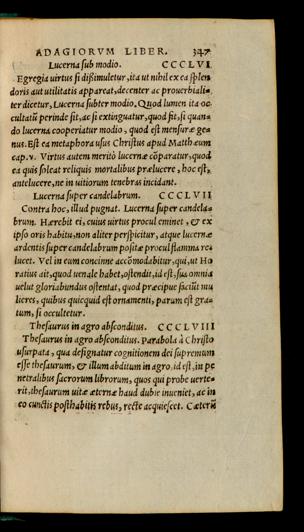 ADAGIORVM LIBER. 347
Lucerna sub modio. CCCLVI
Egregia virtus si dißimuletur, ita ut nihil ex ea splen
doris aut utilitatis appareat, decenter ac prouerbiali-
ter dicetur, Lucerna subter modio. Quod lumen ita oc
cultatũ perinde sit, ac si extinguatur, quod fit, si quan-
do lucerna cooperiatur modio, quod est mensuræ ge
nus. Est ea metaphora usus Christus apud Matthæum
cap. v. Virtus autem meritò lucernæ cõparatur, quod
ea quis soleat reliquis mortalibus prælucere, hoc est,
antelucere, ne in uitiorum tenebras incidant.
Lucerna super candelabrum. CCCLVII
Contra hoc, illud pugnat. Lucerna super candela-
brum. Hærebit ei, cuius virtus procul eminet, & ex
ipso oris habitu, non aliter perspicitur, atque lucernæ
ardentis super candelabrum positæ procul flamma re-
lucet. Vel in eum concinne accõmodabitur, qui, ut Ho
ratius ait, quod uenale habet, ostendit, id est, sua omnia
uelut gloriabundus ostentat, quod præcipue faciũt mu
lieres, quibus quicquid est ornamenti, parum est gra-
tum, si occultetur.
Thesaurus in agro absconditus. CCCLVIII
Thesaurus in agro absconditus. Parabola à Christo
usurpata, qua designatur cognitionem dei supremum
esse thesaurum, & illum abditum in agro, id est, in pe
netralibus sacrorum librorum, quos qui probe uerte-
rit, thesaurum uitæ æternæ haud dubie inueniet, ac in
eo cunctis posthabitis rebus, recte acquiescet. Cæterũ